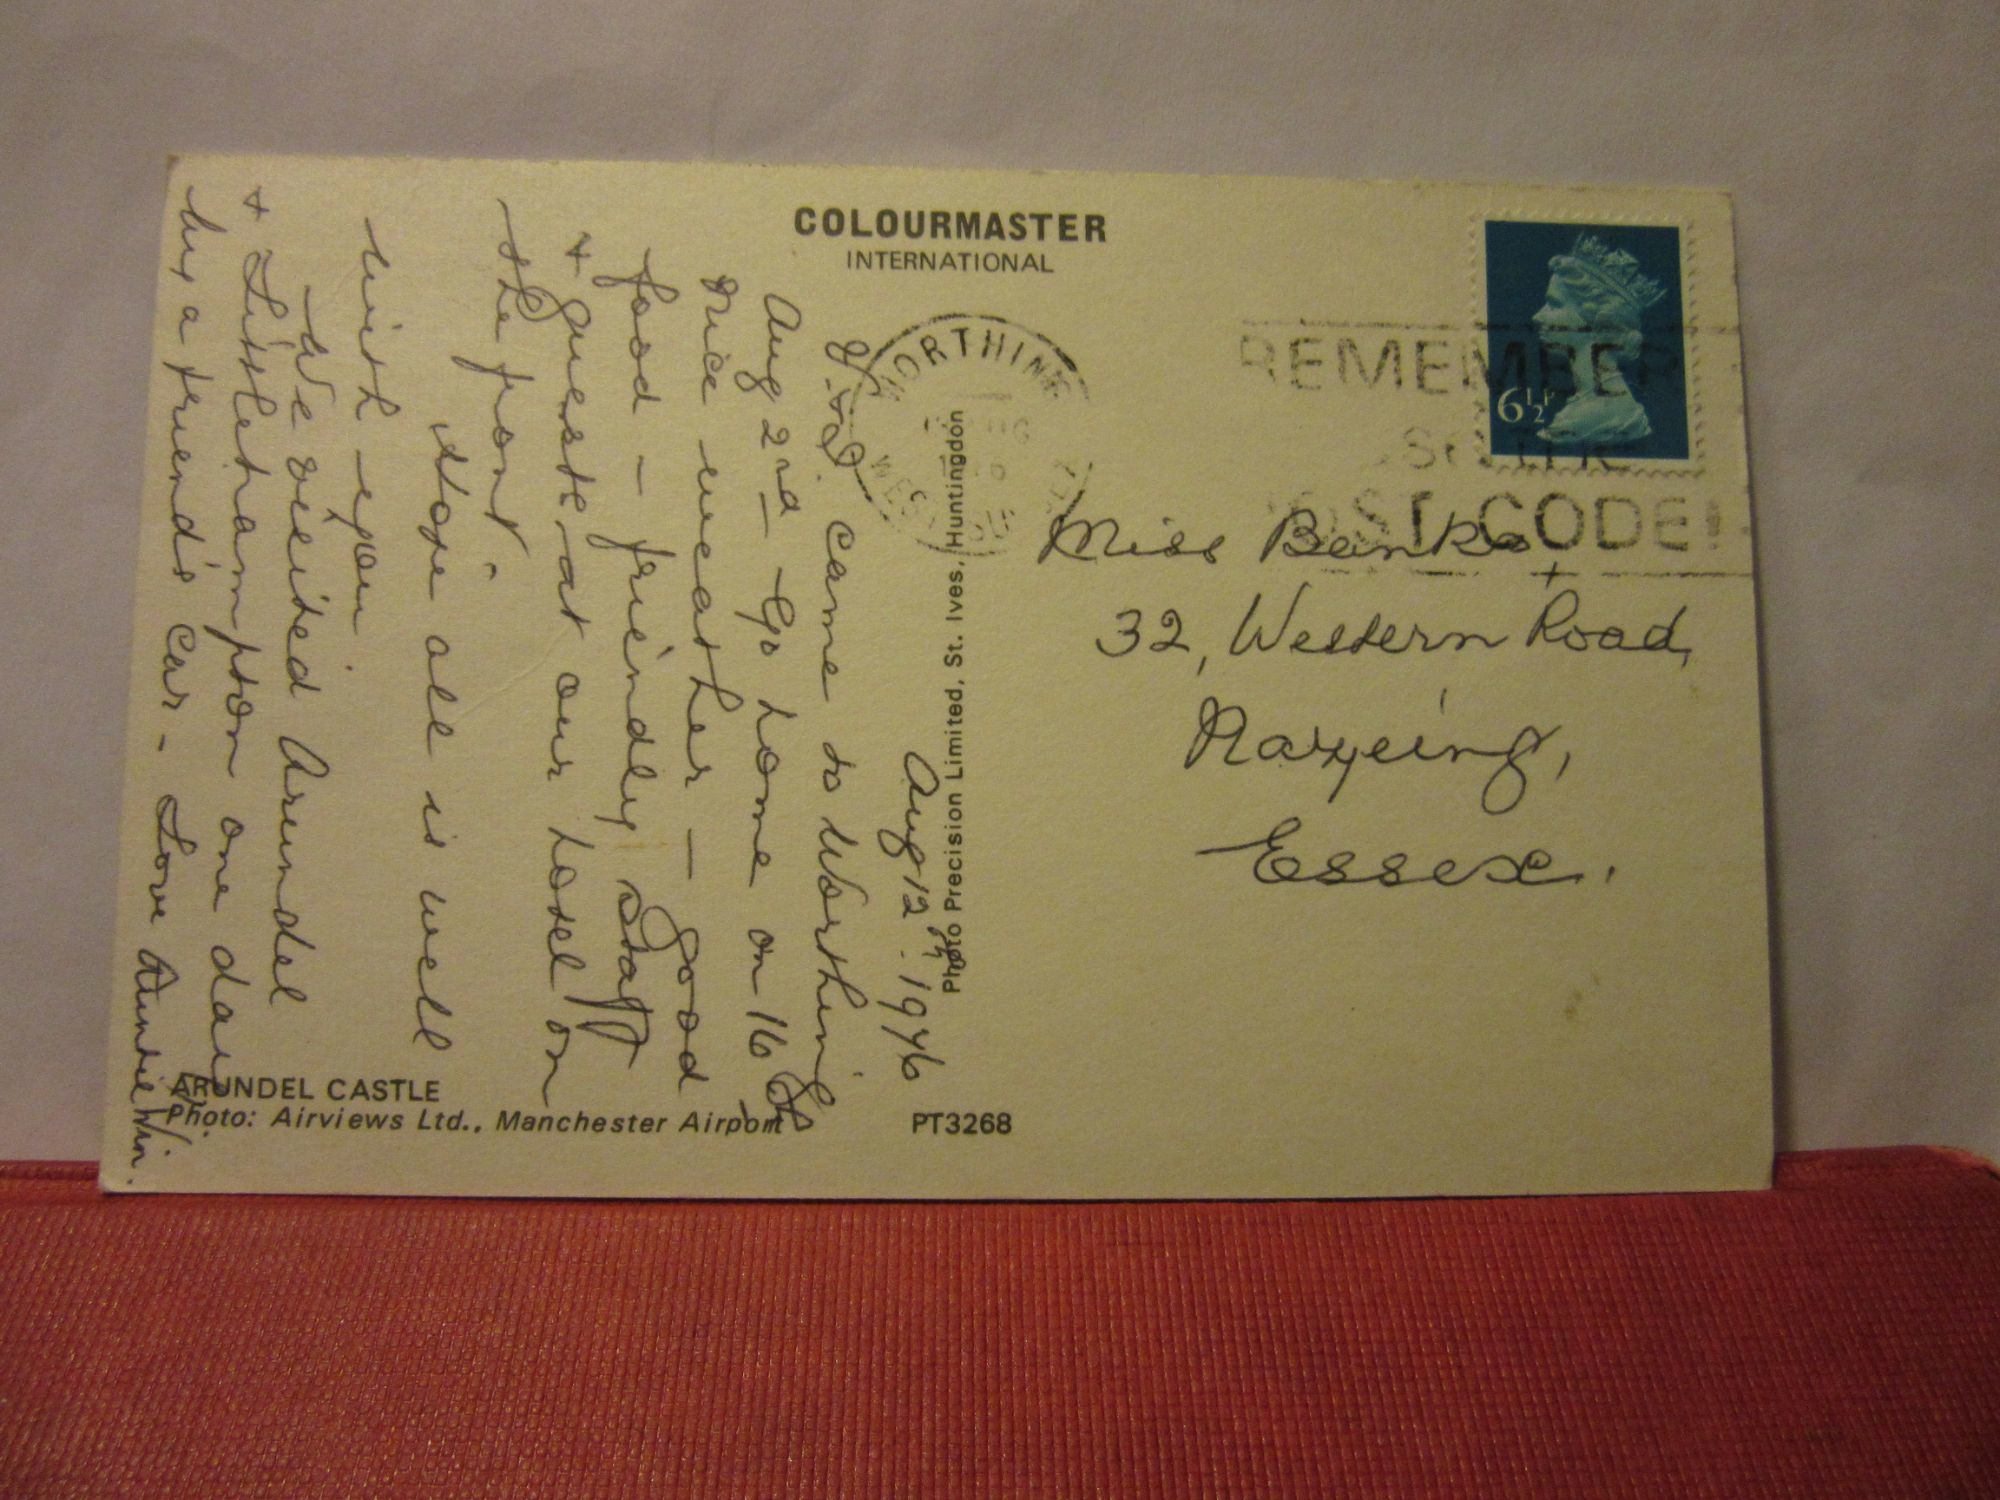 COLOURMASTER
INTERNATIONAL
Aug 12th. 1976
came to Worthing
Aug 2nd - Go home on 16th
Nice weather - good
food - friendly staff
+ guests at our hotel on
the front.
Hope all is well
with you
We visited Arundel
+ Littlehampton one day
by a friend's car - Love Auntie Win.
ARUNDEL CASTLE
Photo: Airviews Ltd., Manchester Airport
PT3268
Photo Precision Limited, St. Ives, Huntingdon
WORTHING
WEST
REMEMBER
POST CODE!
6½P
Miss Banks
32, Western Road,
Nazeing,
Essex.